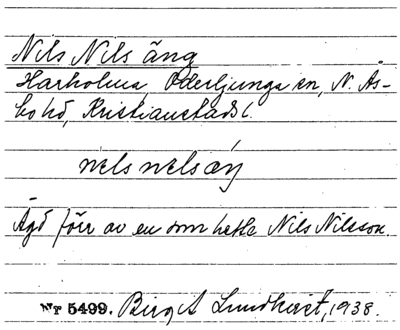 Nils Nils äng
Harholma, Oderljunga sn, N. Ås-
bo hd, Kristianstads l.
nels nels æŋ
Ägd förr av en som hette Nils Nilsson.
Nr 5499. Birgit Lundkvist, 1938.